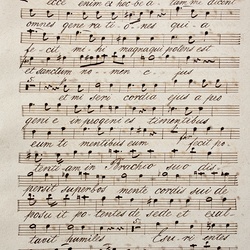 ecce enim ex hoc beatam me dicent
omnes generationes quia
fecit mihi magna qui potens est
et sanctum nomen ejus
et misericordia ejus a pro
genie in progenies timentibus
eum timentibus eum fecit po
tentiam in Brachio suo dis
persit superbos mente cordis sui de
posuit potentes de sede et exal
tavit humiles Esurientes